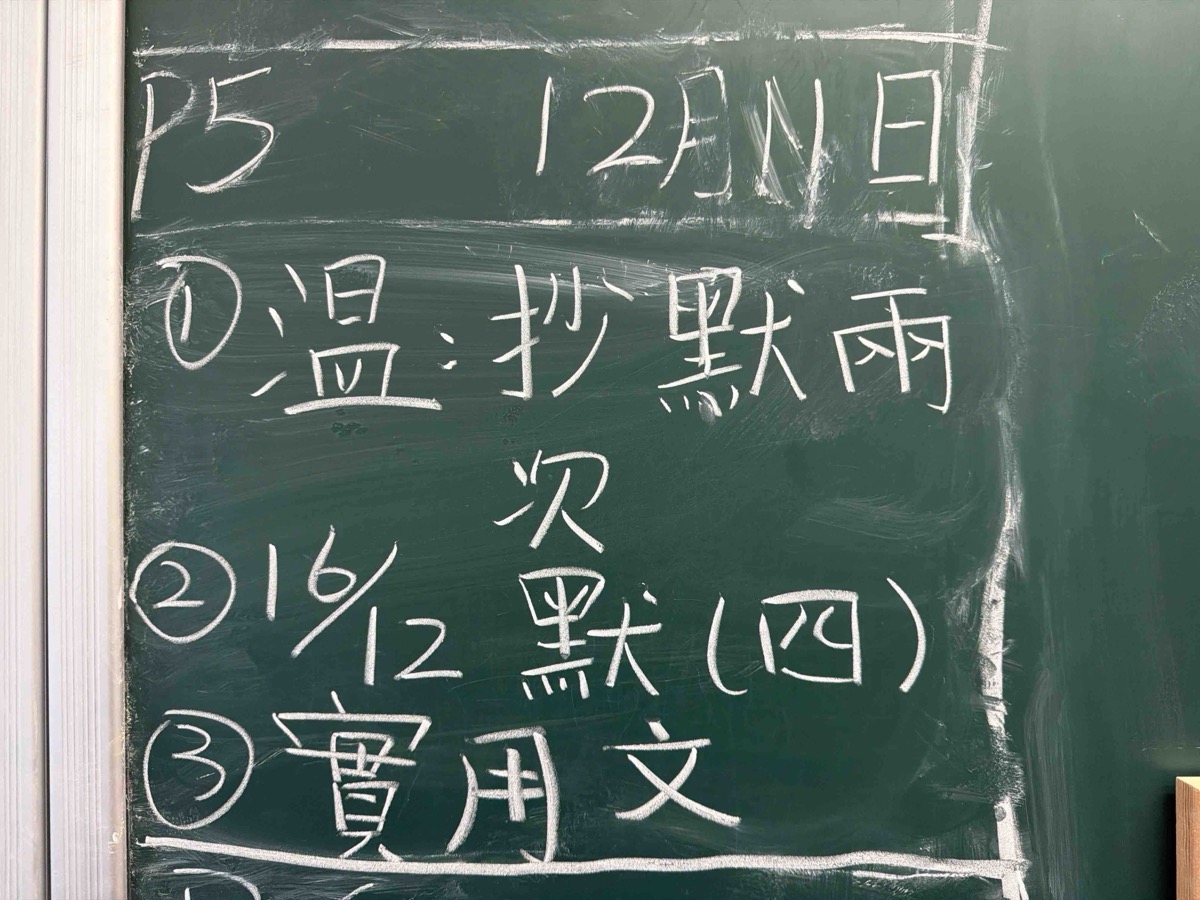 P5 12月11日
①溫：抄默兩
次
②16/12 默(四)
③實用文